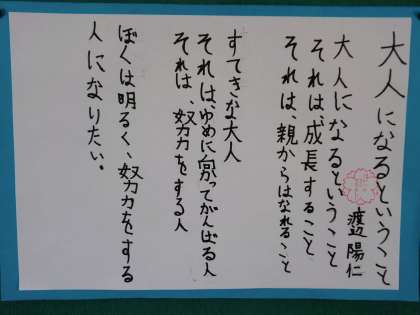 大人になるということ
渡辺陽仁
大人になるということ
それは、成長すること
それは、親からはなれること
すてきな大人
それは、ゆめに向ってがんばる人
それは、努力をする人
ぼくは明るく、努力をする
人になりたい。